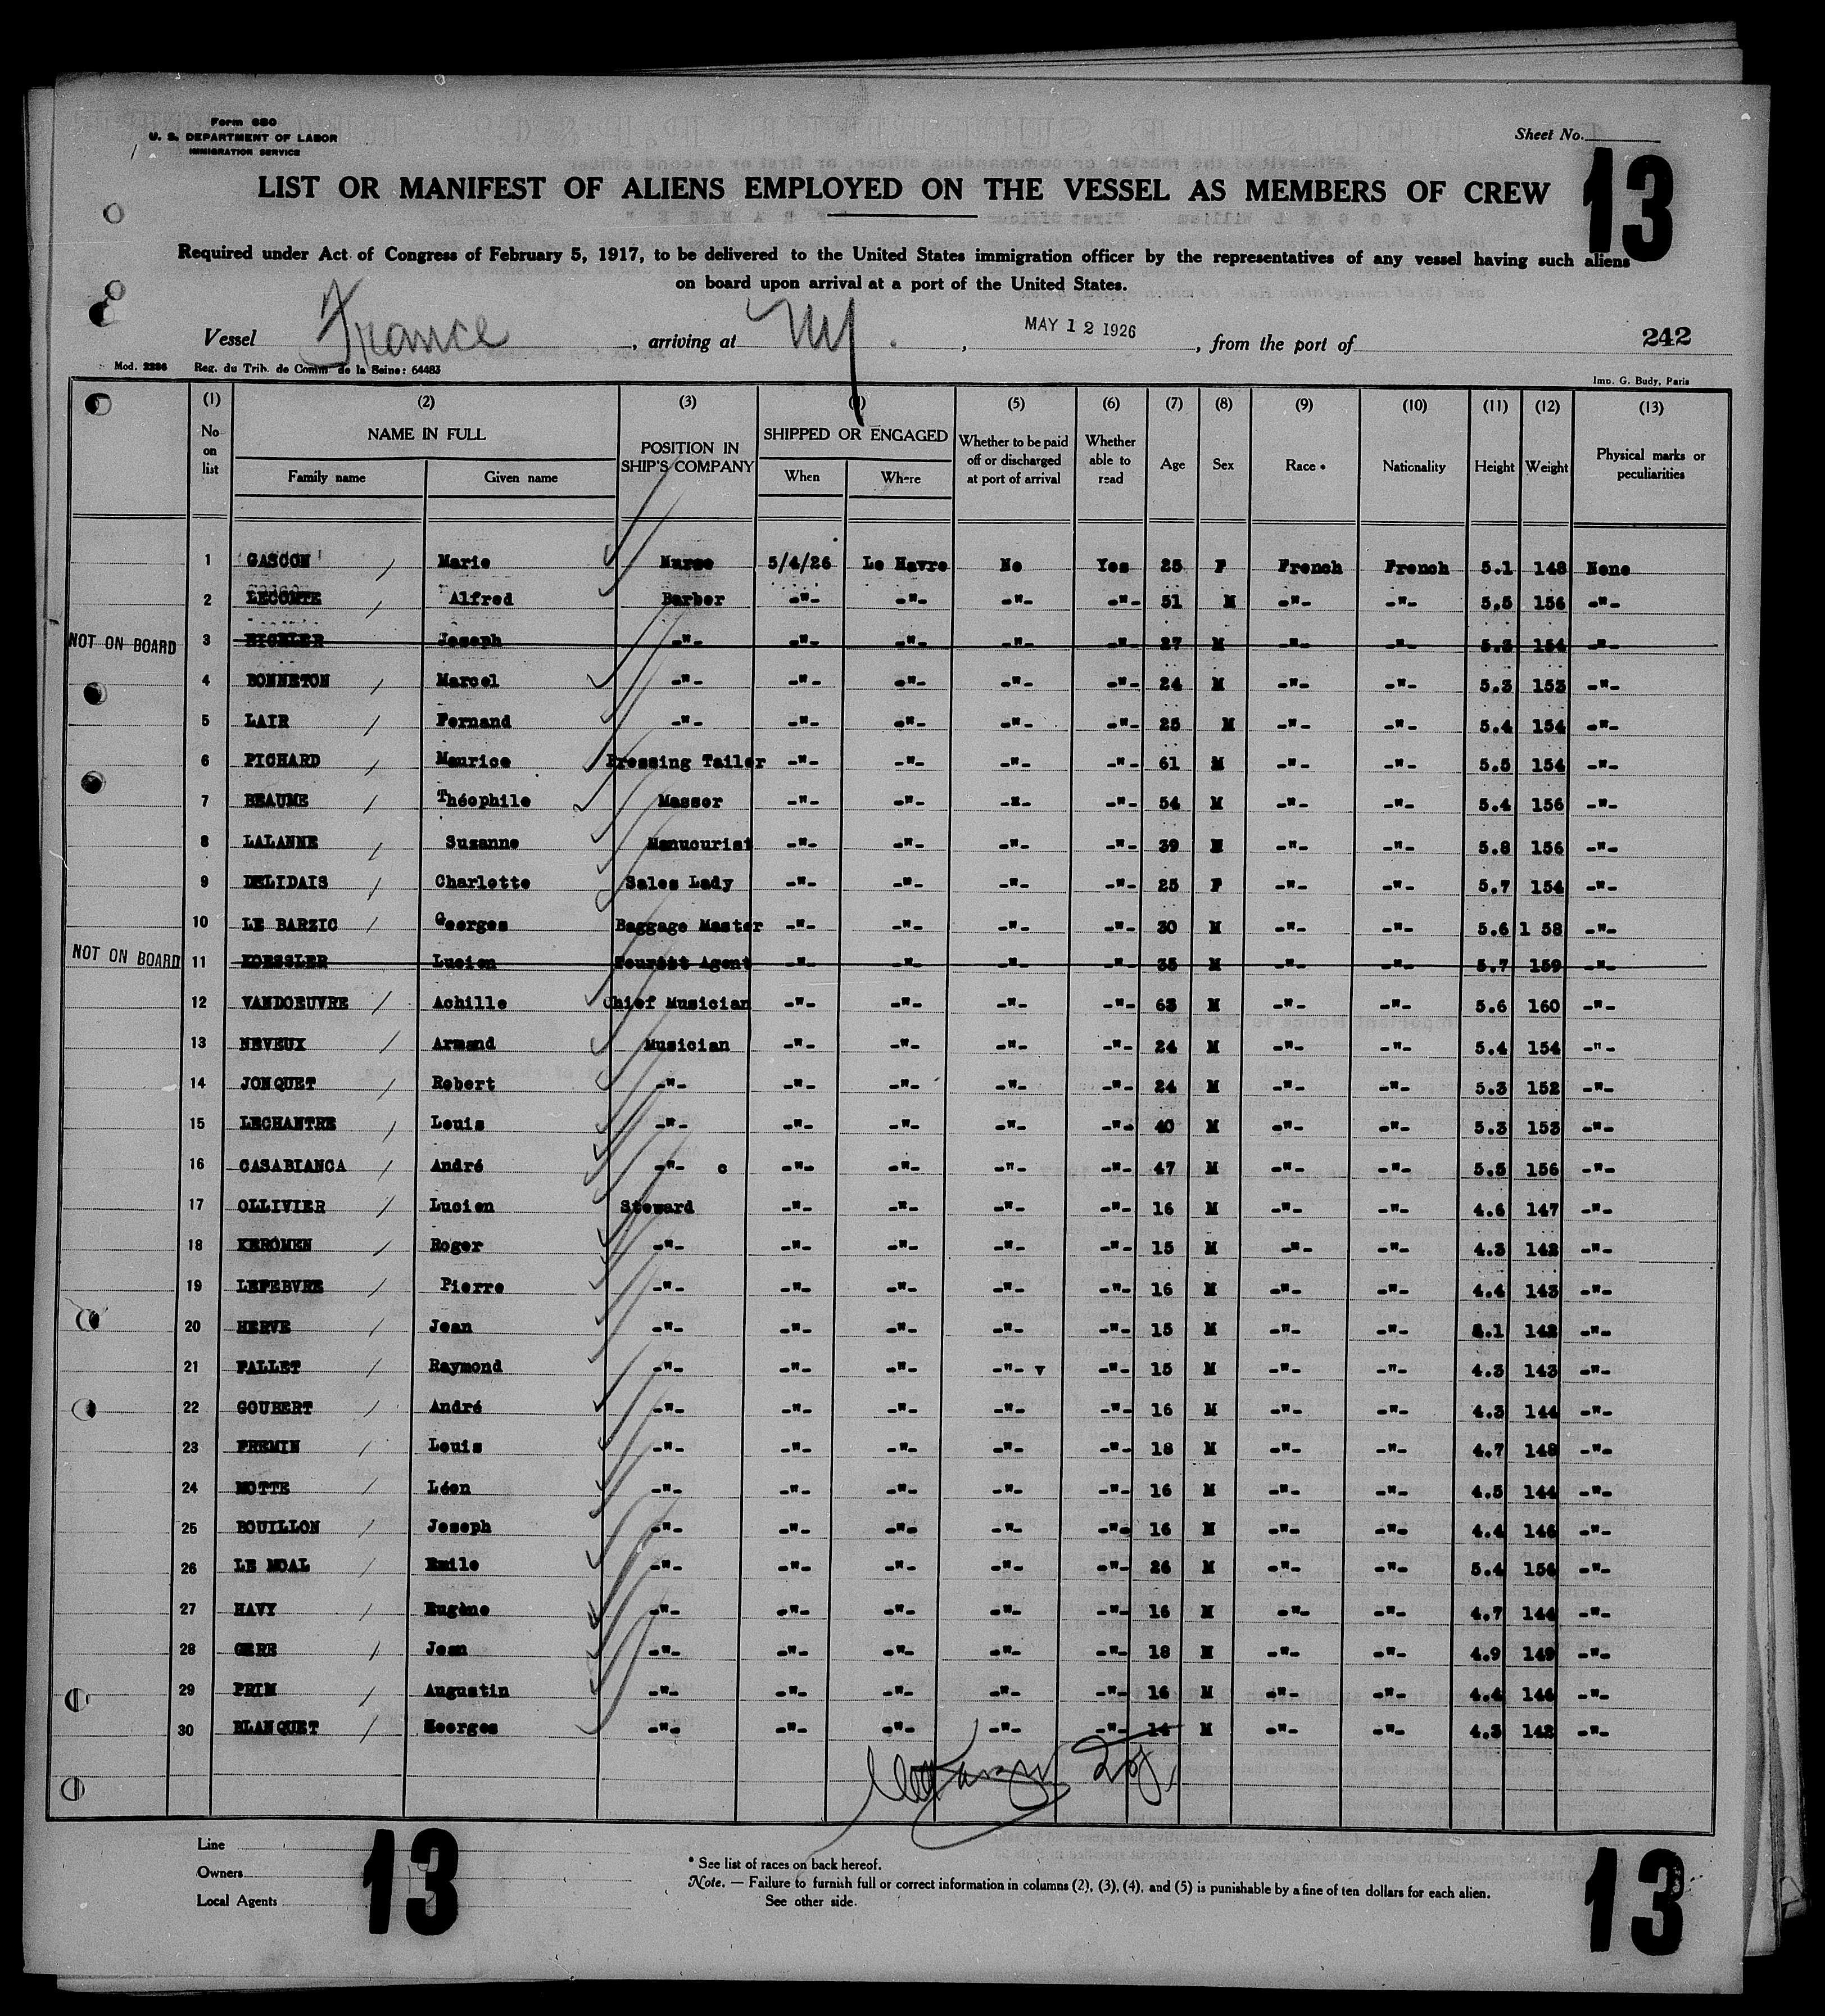 Form 680
U. S. DEPARTMENT OF LABOR
IMMIGRATION SERVICE
Sheet No.
13
LIST OR MANIFEST OF ALIENS EMPLOYED ON THE VESSEL AS MEMBERS OF CREW
Required under Act of Congress of February 5, 1917, to be delivered to the United States immigration officer by the representatives of any vessel having such aliens
on board upon arrival at a port of the United States.
Vessel France , arriving at NY. , MAY 12 1926 , from the port of 242
Mod. 2286 Reg. du Trib. de Comm de la Seine: 64483 Imp. G. Budy, Paris
(1) (2) (3) (4) (5) (6) (7) (8) (9) (10) (11) (12) (13)
No on list NAME IN FULL Family name Given name POSITION IN SHIP'S COMPANY SHIPPED OR ENGAGED When Where Whether to be paid off or discharged at port of arrival Whether able to read Age Sex Race * Nationality Height Weight Physical marks or peculiarities
1 GASCON / Marie Nurse 5/4/26 Le Havre No Yes 25 F French French 5.1 148 None
2 LECOMTE / Alfred Barber -"- -"- -"- -"- 51 M -"- -"- 5.5 156 -"-
NOT ON BOARD 3 Joseph -"- -"- -"- -"- -"- 27 M -"- -"- 5.3 154 -"-
4 BONNETON / Marcel -"- -"- -"- -"- -"- 24 M -"- -"- 5.3 153 -"-
5 LAIR / Fernand -"- -"- -"- -"- -"- 25 M -"- -"- 5.4 154 -"-
6 PICHARD / Maurice Pressing Tailor -"- -"- -"- -"- 61 M -"- -"- 5.5 154 -"-
7 BEAUME / Théophile Masser -"- -"- -"- -"- 54 M -"- -"- 5.4 156 -"-
8 LALANNE / Suzanne Manucurist -"- -"- -"- -"- 39 -"- -"- 5.8 156 -"-
9 DELIDAIS / Charlotte Sales Lady -"- -"- -"- -"- 25 F -"- -"- 5.7 154 -"-
10 LE BARZIC / Georges Baggage Master -"- -"- -"- -"- 30 M -"- -"- 5.6 1 58 -"-
NOT ON BOARD 11 KOESSLER Lucien Tourist Agent -"- -"- -"- -"- 35 M -"- -"- 5.7 159 -"-
12 VANDOEUVRE / Achille Chief Musician -"- -"- -"- -"- 63 M -"- -"- 5.6 160 -"-
13 NEVEUX / Armand Musician -"- -"- -"- -"- 24 M -"- -"- 5.4 154 -"-
14 JONQUET / Robert -"- -"- -"- -"- -"- 24 M -"- -"- 5.3 152 -"-
15 LECHANTRE / Louis -"- -"- -"- -"- -"- 40 M -"- -"- 5.3 153 -"-
16 CASABIANCA / André -"- c -"- -"- -"- -"- 47 M -"- -"- 5.5 156 -"-
17 OLLIVIER / Lucien Steward -"- -"- -"- -"- 16 M -"- -"- 4.6 147 -"-
18 KEROMEN / Roger -"- -"- -"- -"- -"- 15 M -"- -"- 4.3 142 -"-
19 LEFEBVRE / Pierre -"- -"- -"- -"- -"- 16 M -"- -"- 4.4 143 -"-
20 HERVE / Jean -"- -"- -"- -"- -"- 15 M -"- -"- 142 -"-
21 FALLET / Raymond -"- -"- -"- -"- v -"- 15 M -"- -"- 4.3 143 -"-
22 GOUBERT / André -"- -"- -"- -"- -"- 16 M -"- -"- 4.3 144 -"-
23 FREMIN / Louis -"- -"- -"- -"- -"- 18 M -"- -"- 4.7 148 -"-
24 MOTTE / Léon -"- -"- -"- -"- -"- 16 M -"- -"- 4.5 144 -"-
25 BOUILLON / Joseph -"- -"- -"- -"- -"- 16 M -"- -"- 4.4 146 -"-
26 LE MOAL / Emile -"- -"- -"- -"- -"- 26 M -"- -"- 5.4 156 -"-
27 HAVY / Eugène -"- -"- -"- -"- -"- 16 M -"- -"- 4.7 144 -"-
28 GERE / Jean -"- -"- -"- -"- -"- 18 M -"- -"- 4.9 149 -"-
29 PRIM / Augustin -"- -"- -"- -"- -"- 16 M -"- -"- 4.4 146 -"-
30 BLANQUET / Georges -"- -"- -"- -"- -"- 14 M -"- -"- 4.3 142 -"-
Line
Owners
Local Agents
13
* See list of races on back hereof.
Note. — Failure to furnish full or correct information in columns (2), (3), (4), and (5) is punishable by a fine of ten dollars for each alien.
See other side.
13